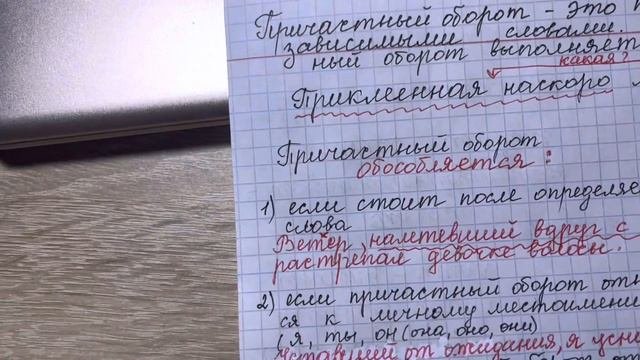 Причастный оборот - это
зависимыми словами.
ный оборот выполняет
какая?
Приклеенная наскоро
Причастный оборот
обособляется:
1) если стоит после определяе
слова
Ветер, налетевший вдруг с
растрепал девочке волосы.
2) если причастный оборот отн
ся к личному местоимени
(я, ты, он (она, оно, они)
Уставший от ожидания, я усн